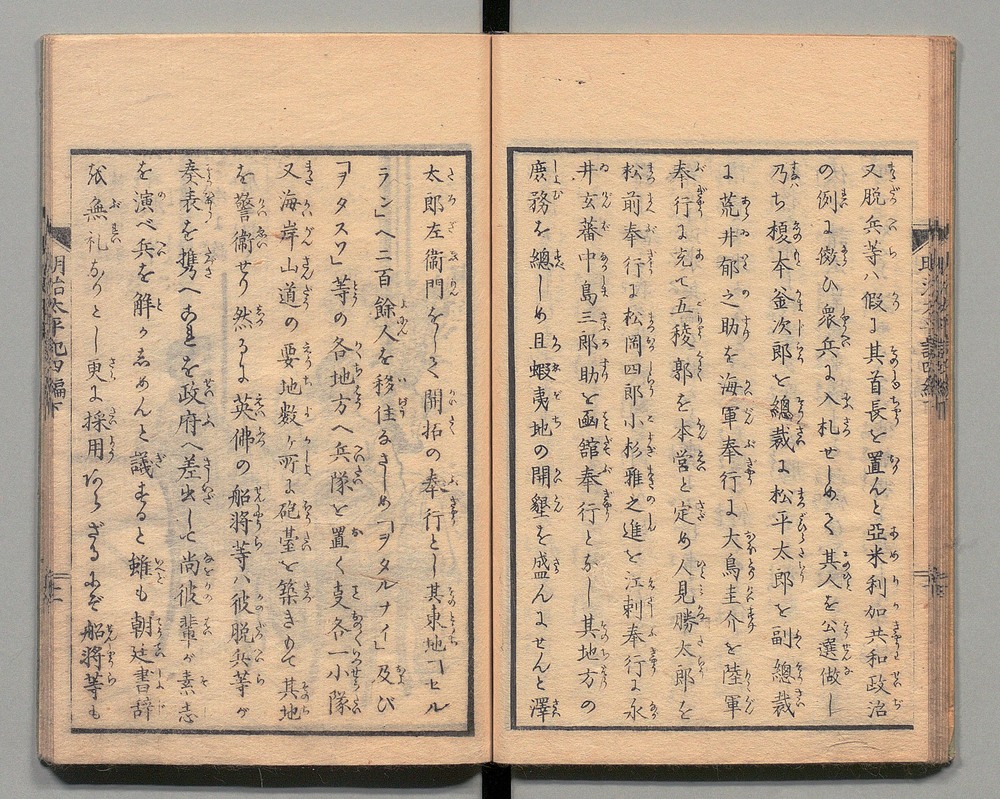 又脱兵等ハ假に其首長を置んと亞米利加共和政治
の例に傚ひ衆兵に入札せしめて其人を公選做し
乃ち榎本釜次郎を總裁に松平太郎を副總裁
に荒井郁之助を海軍奉行に大鳥圭介を陸軍
奉行に充て五稜郭を本営と定め人見勝太郎を
松前奉行に松岡四郎小杉雅之進を江刺奉行に永
井玄蕃中島三郎助を函館奉行となし其地方の
庶務を總しめ且蝦夷地の開墾を盛んにせんと澤
太郎左衞門をして開拓の奉行とし其東地「ヒル
ラン」へ二百餘人を移住なさしめ「ヲタルナイ」及び
「ヲタスツ」等の各地方へ兵隊を置く支各一小隊
又海岸山道の要地数ヶ所に砲臺を築きもて其地
を警衞せり然るに英佛の船將等ハ彼脱兵等が
奏表を携へ之を政府へ差出して尚彼輩が素志
を演べ兵を解かしめんと議すると雖も朝廷書辞
甚無礼なりとし更に採用あらざるにぞ船將等も
明治太平記四編下